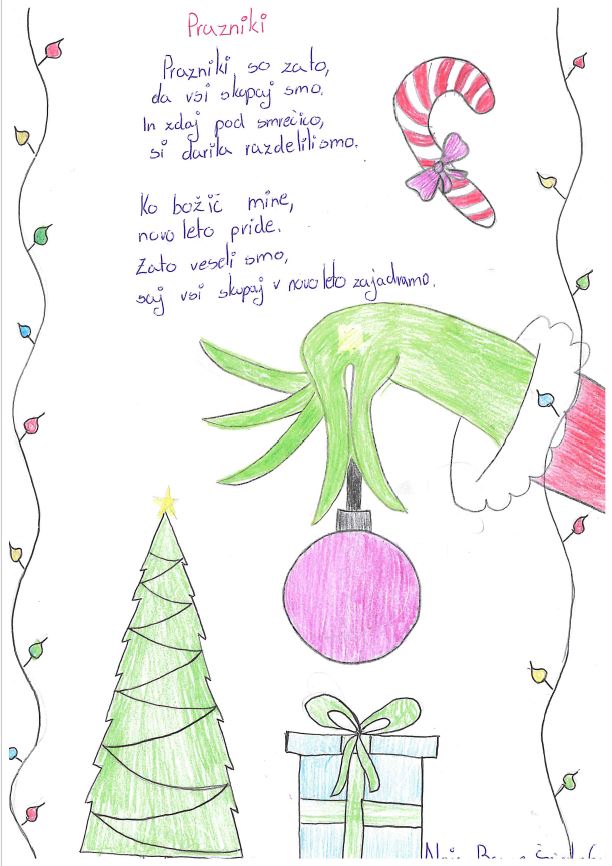 Prazniki
Prazniki so zato,
da vsi skupaj smo.
In zdaj pod smrečico,
si darila razdelilismo.
Ko božič mine,
novo leto pride.
Zato veseli smo,
saj vsi skupaj v novo leto zajadramo.